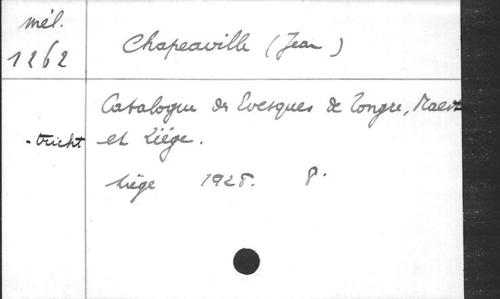 mél.
1262
Chapeaville (Jean)
Catalogue des Evesques de Tongre, Maes
-tricht et Liége.
Liége 1928. 8°.